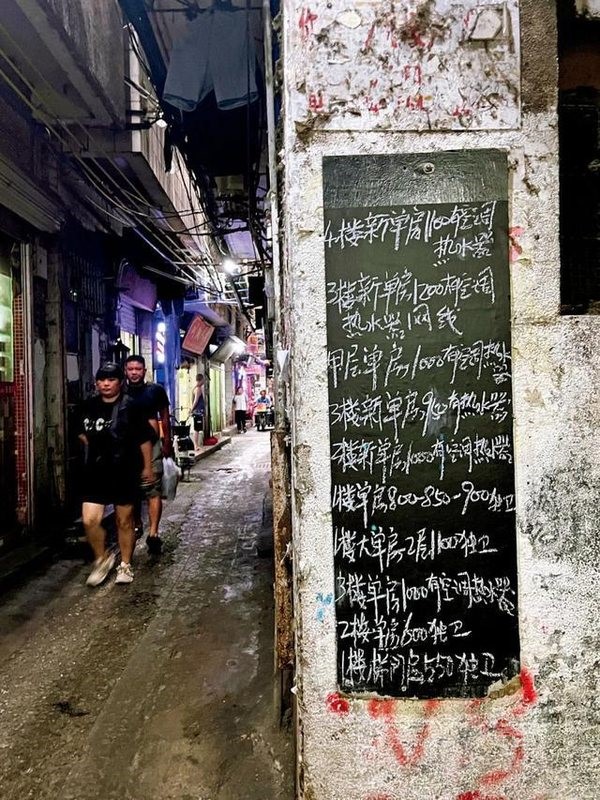 4楼新单房1100有空调
热水器
3楼新单房1200有空调
热水器网线
单房1000有空调热水器
3楼新单房900有热水器
2楼新单房1000有空调热水器
1楼单房800-850-900独卫
1楼大单房2层1100独卫
3楼单房1000有空调热水器
2楼单房600独卫
1楼 550独卫